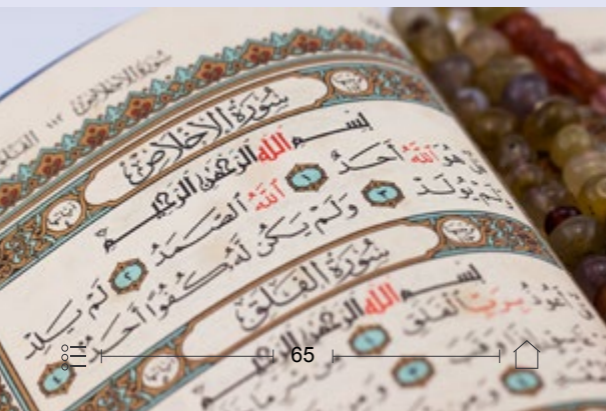 سورة الإخلاص ١١٢
سُورَةُ الْإِخْلَاصِ
بِسْمِ اللهِ الرَّحْمَنِ الرَّحِيمِ
هُوَ اللهُ أَحَدٌ ١ اللهُ الصَّمَدُ ٢ لَمْ يَلِدْ
وَلَمْ يُولَدْ ٣ وَلَمْ يَكُن لَّهُ كُفُوًا أَحَدٌ ٤
سُورَةُ الْفَلَقِ
بِسْمِ اللهِ الرَّحْمَنِ الرَّحِيمِ
أَعُوذُ بِرَبِّ الْفَلَقِ ١
65